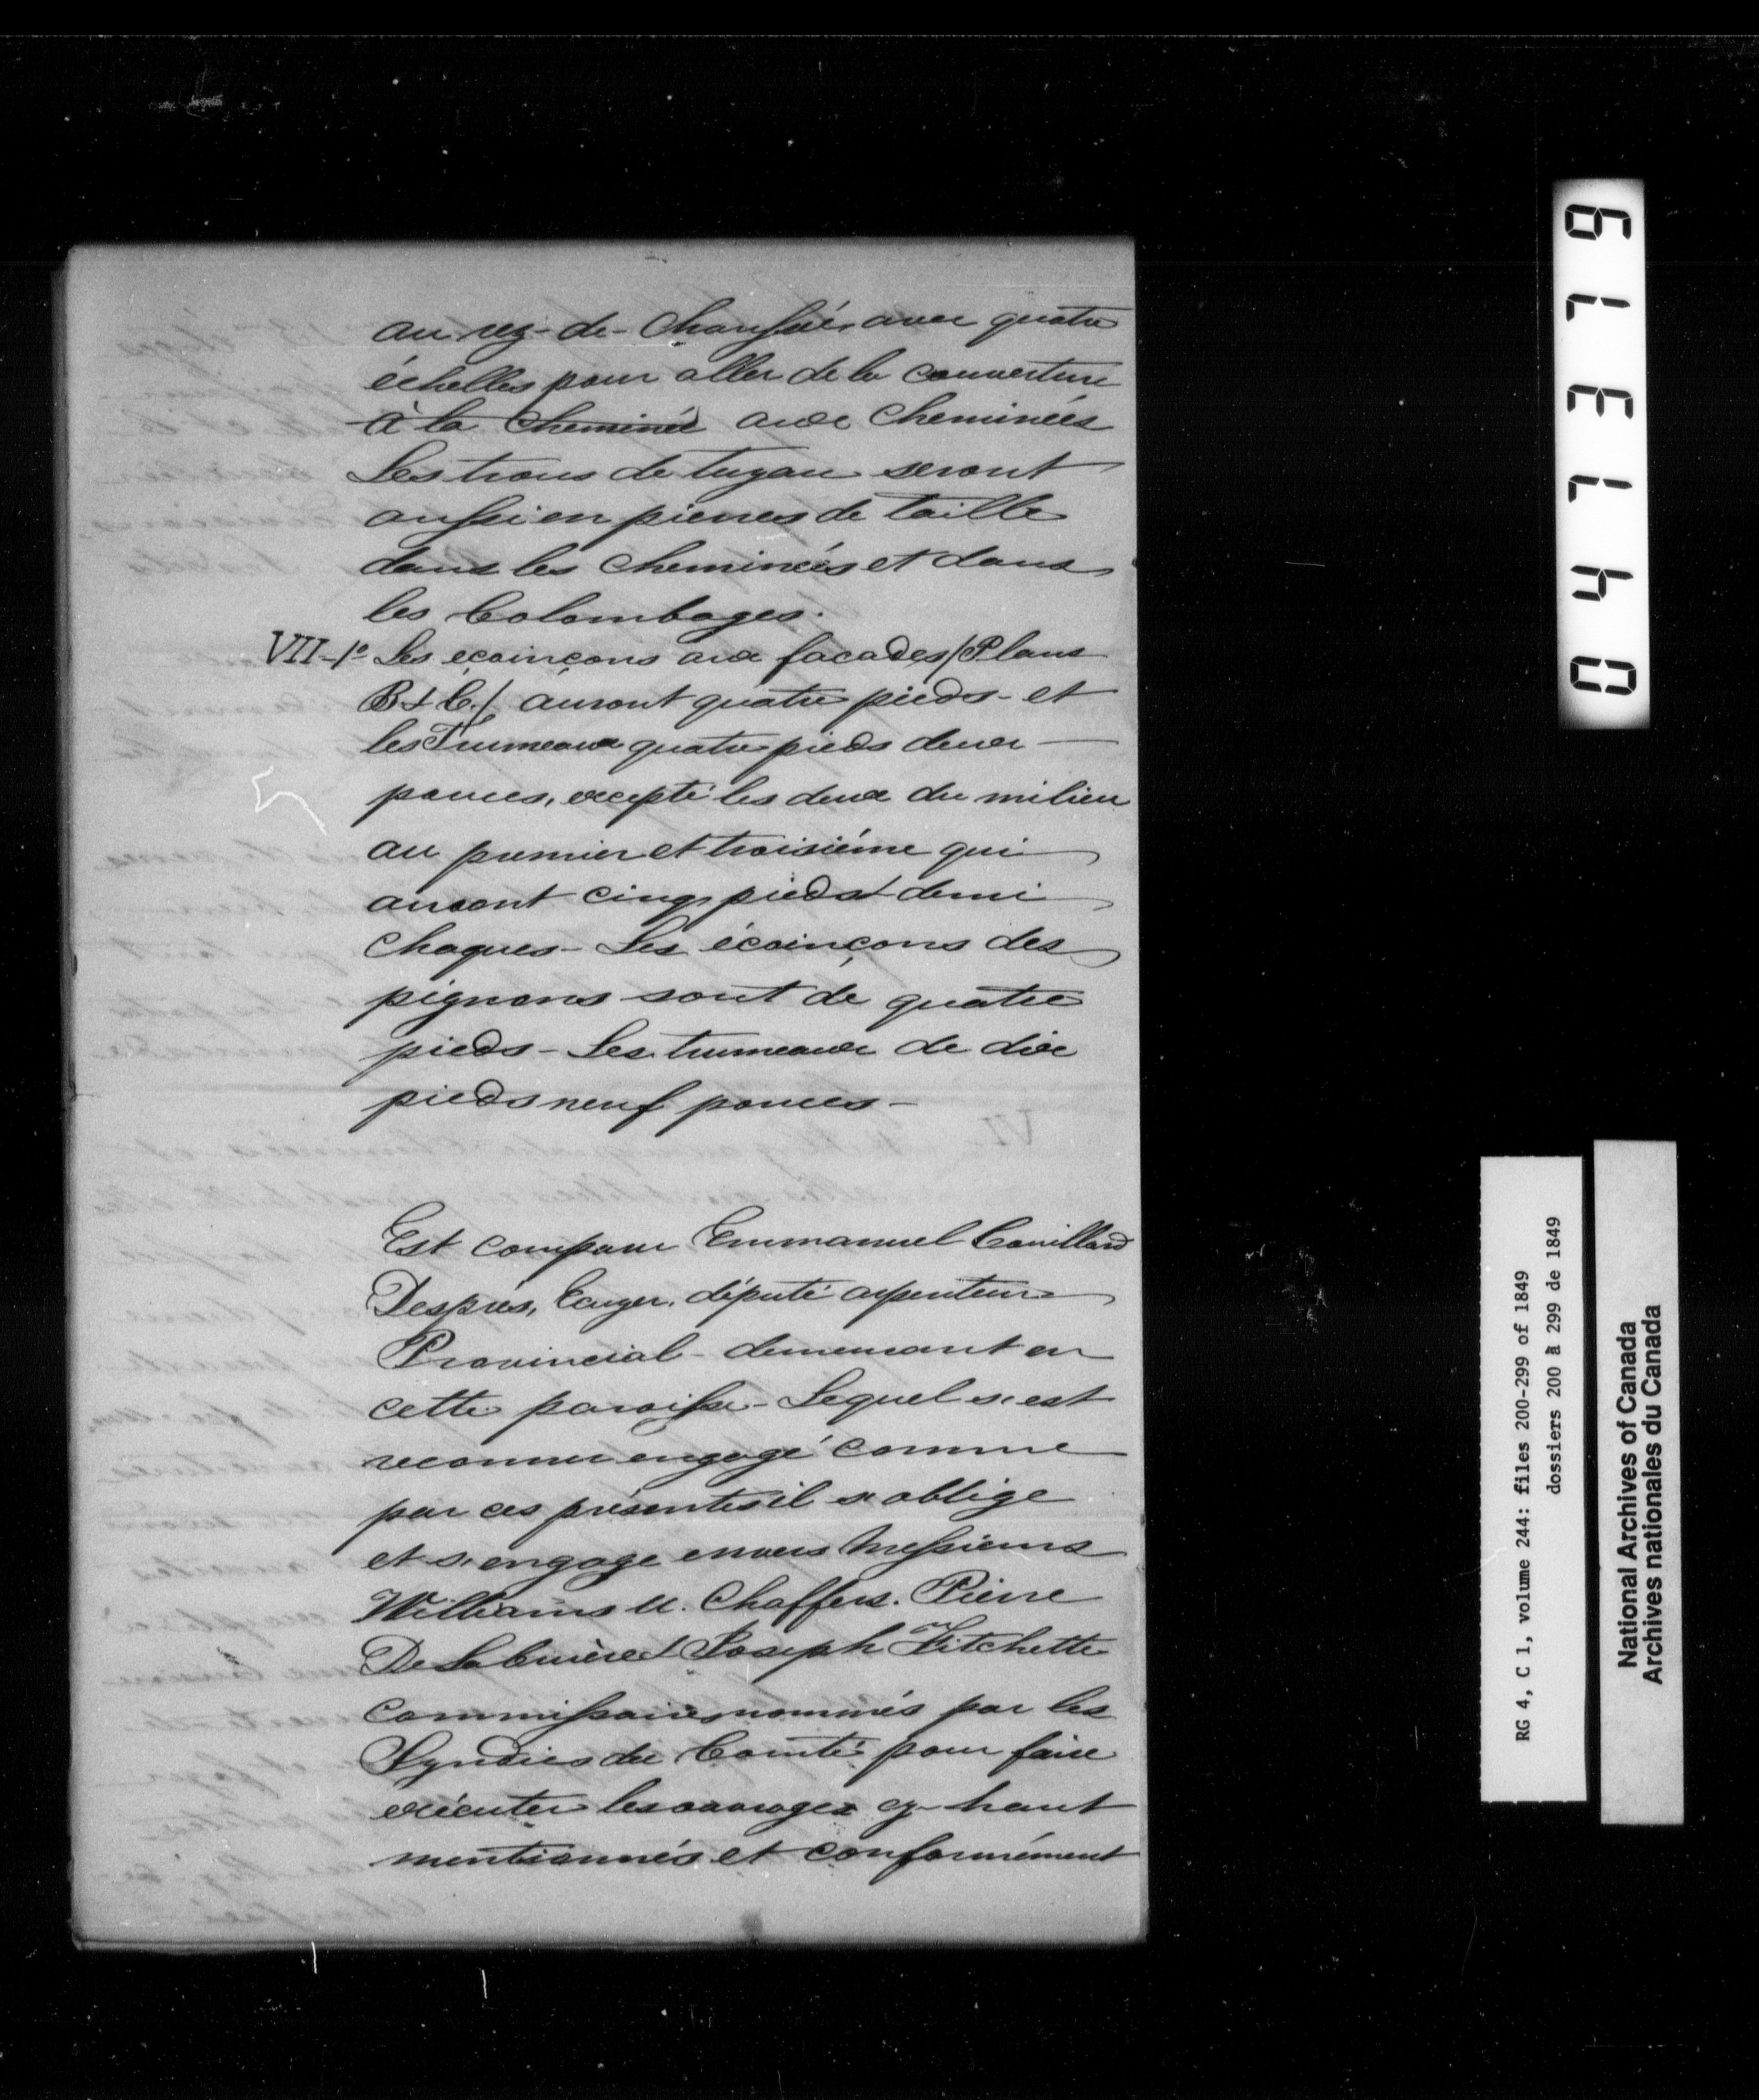 au rez-de-Chaussée, avec quatre
échelles pour aller de la couverture
à la Cheminée aux Cheminées
Les trous de tuyau seront
aussi en pierres de taille
dans les Cheminées et dans
les Colombages.
VII-1º Les ecoinçons aux facades/Plans
B & C./ auront quatre pieds - et
les Trumeaux quatre pieds deux
pouces, excepté les deux du milieu
au premier et troisiéme qui
auront cinq pieds & demi
Chaques - Les écoinçons des
pignons sont de quatre
pieds - Les trumeaux de dix
pieds neuf pouces -
Est comparu Emmanuel Couillard
Després, Ecuyer, député arpenteur
Provincial - demeurant en
cette paroisse - Lequel s'est
reconnu engagé comme
par ces présentes il s'oblige
et s'engage envers Messieurs
William U. Chaffers. Pierre
De LaBruère & Joseph Fitchette
Commissaires nommés par les
Syndics du Comté pour faire
exécuter les ouvrages cy-haut
mentionnés et conformément
043739
RG 4, C 1, volume 244: files 200-299 of 1849
dossiers 200 à 299 de 1849
National Archives of Canada
Archives nationales du Canada